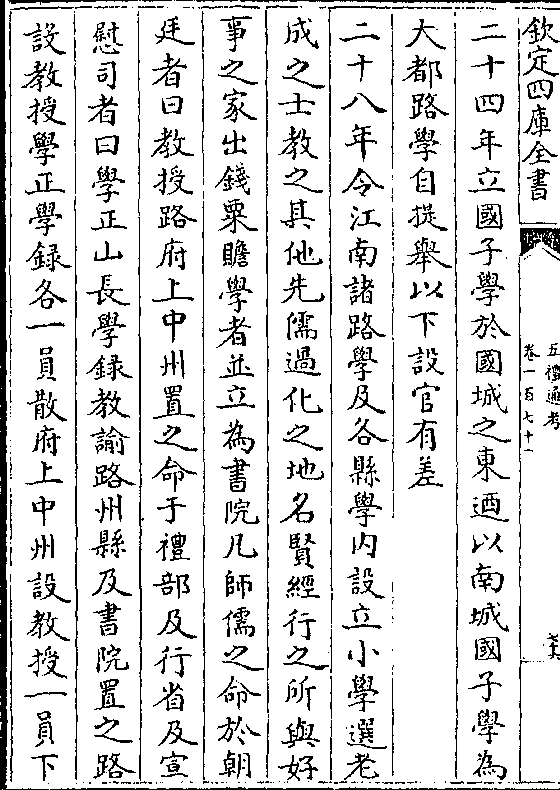 欽定四庫全書
五禮通考
卷一百七十一
二十四年立國子學於國城之東迺以南城國子學為
大都路學自提舉以下設官有差
二十八年令江南諸路學及各縣學内設立小學選老
成之士教之其他先儒過化之地名賢經行之所與好
事之家出錢粟贍學者並立為書院凡師儒之命於朝
廷者曰教授路府上中州置之命于禮部及行省及宣
慰司者曰學正山長學録教諭路州縣及書院置之路
設教授學正學録各一員散府上中州設教授一員下